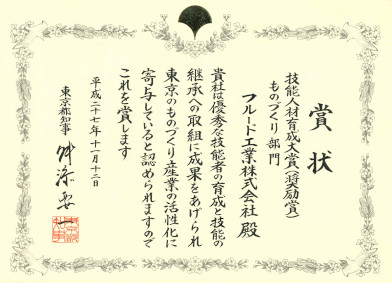 賞状
技能人材育成大賞(奨励賞)
ものづくり部門
フルード工業株式会社 殿
貴社は優秀な技能者の育成と技能の
継承への取組に成果をあげられ
東京のものづくり産業の活性化に
寄与していると認められますので
これを賞します
平成二十七年十一月十二日
東京都知事 舛添要一